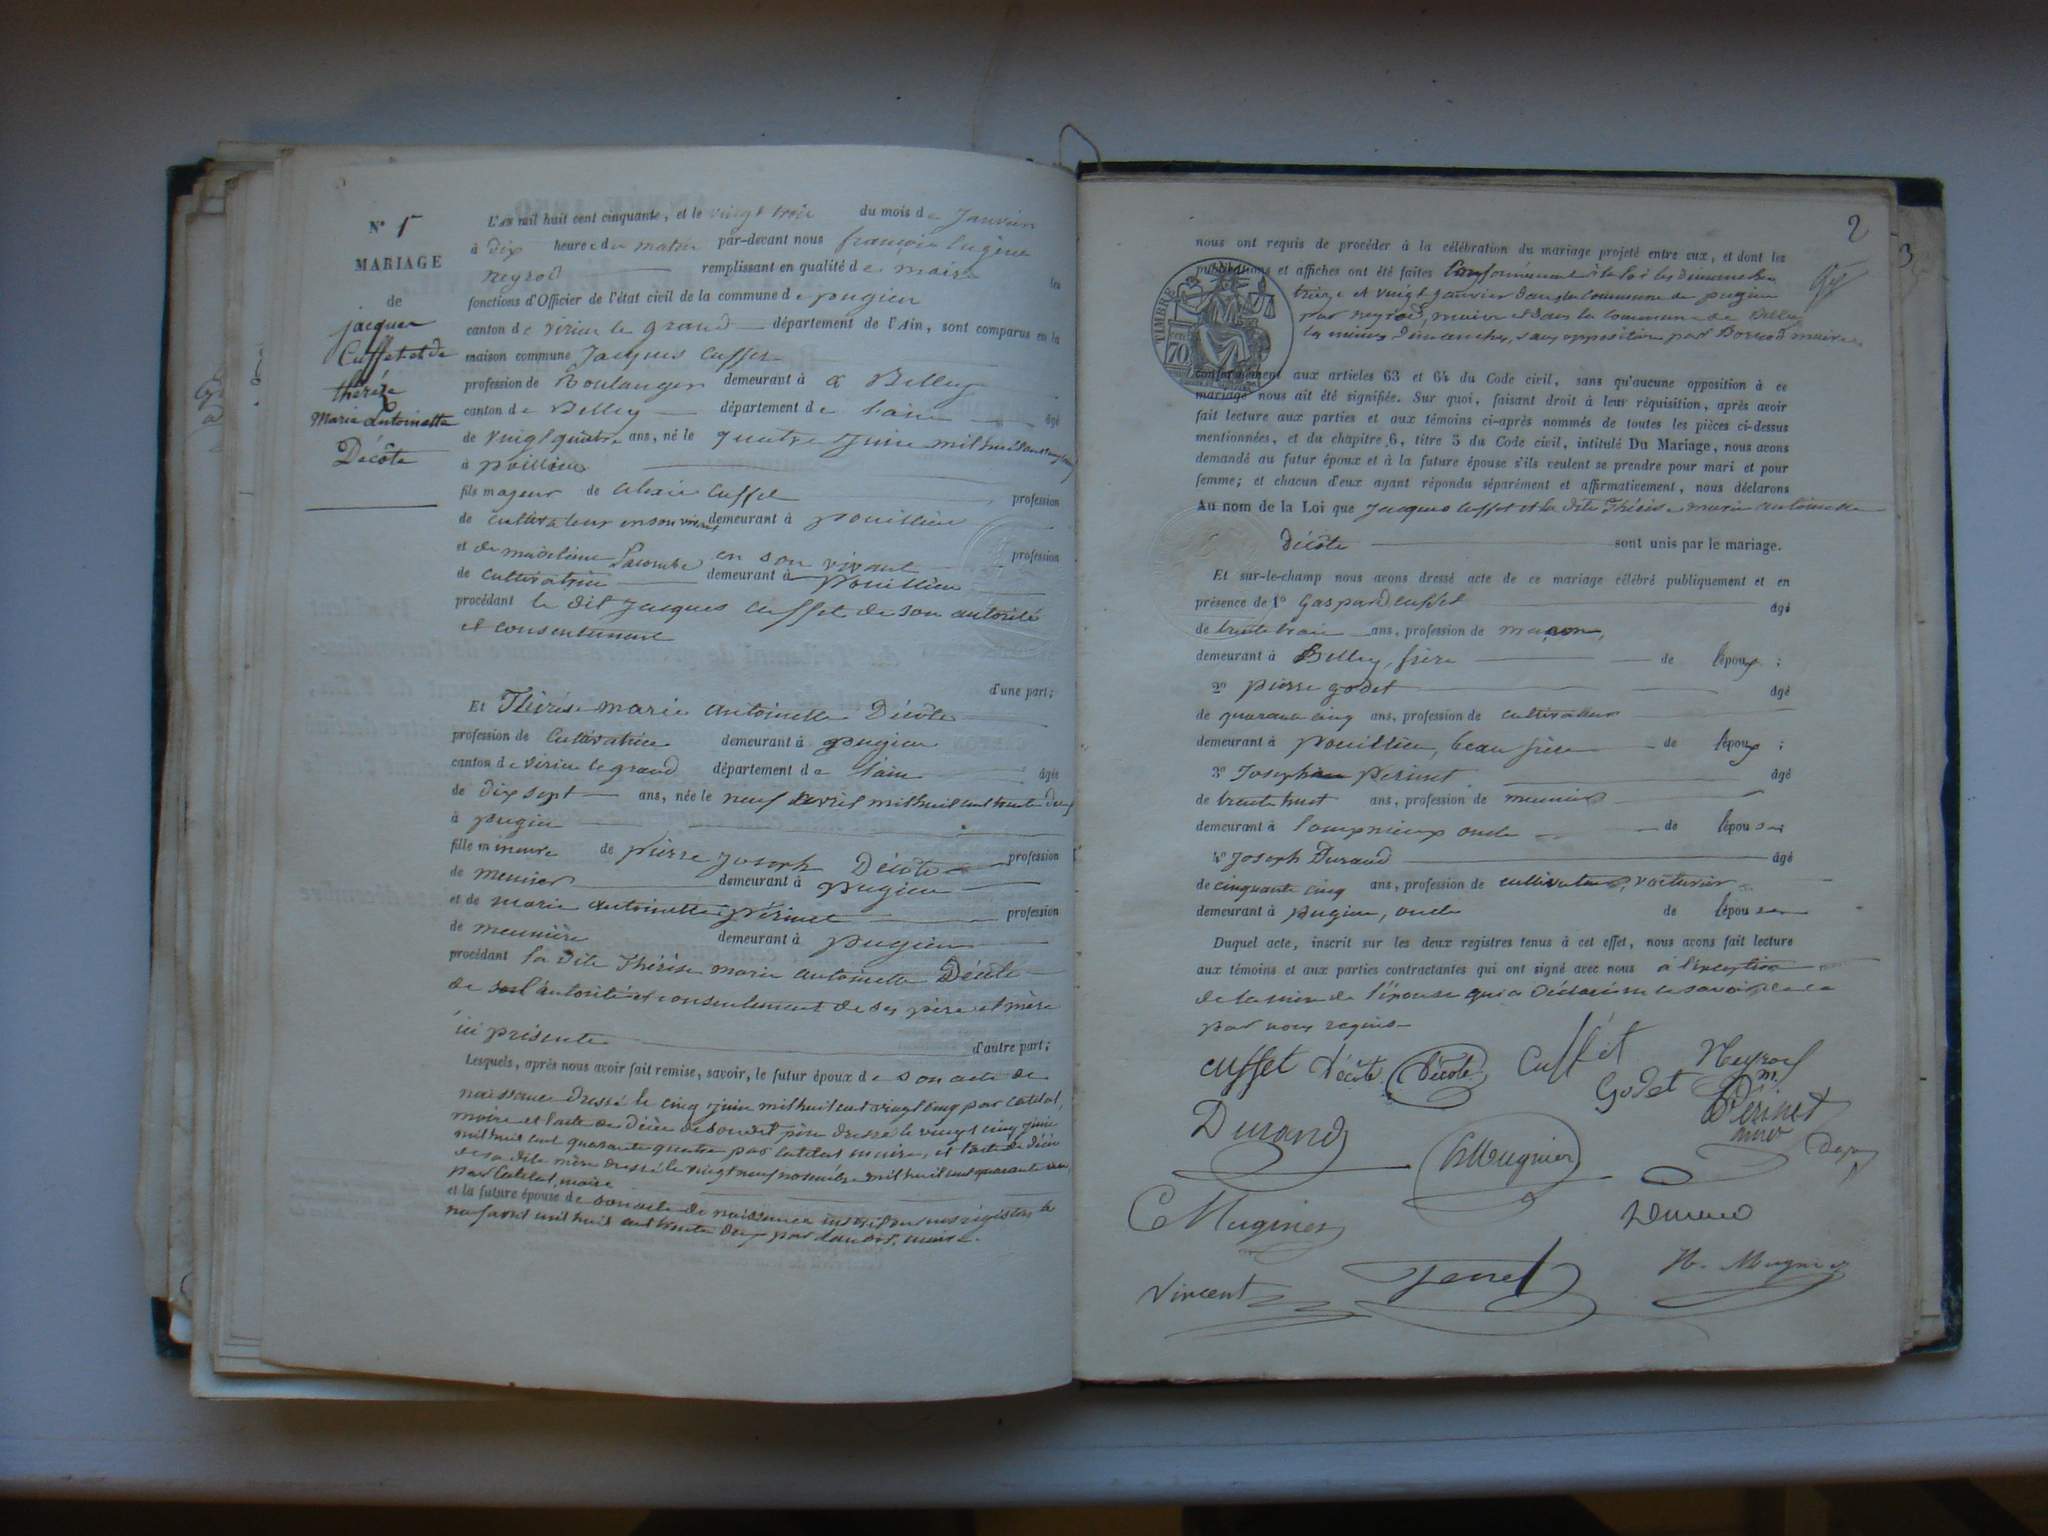 N° 1
MARIAGE
de
jacques
Cuffet et de
thérèze
Marie Antoinette
Décôte
L'AN mil huit cent cinquante, et le vingt trois du mois de Janvier
à dix heures du matin par-devant nous françois Eugène
Neyrod remplissant en qualité de maire les
fonctions d'Officier de l'état civil de la commune de pugieu
canton de virieu le grand département de l'Ain, sont comparus en la
maison commune Jacques Cuffet
profession de Boulanger demeurant à a Belley
canton de Belley département de l'ain âgé
de vingt quatre ans, né le quatre juin mil huit cent vingt cinq
à poillieu
fils majeur de alexis Cuffet profession
de cultivateur en son vivant demeurant à pouillieu
et de madelaine Lacombe en son vivant profession
de cultivatrice demeurant à Pouillieu
procédant le dit Jacques Cuffet de son autorité
et consentement
d'une part;
Et Thérèse marie antoinette Décôte
profession de Cultivatrice demeurant à pugieu
canton de virieu le grand département de l'ain âgée
de dix sept ans, née le neuf avril mil huit cent trente deux
à pugieu
fille mineure de pierre Joseph Décôte profession
de meunier demeurant à pugieu
et de marie antoinette périnet profession
de meunière demeurant à pugieu
procédant la dite Thérèse marie antoinette Décote
de l'autorité et consentement de ses père et mère
ici présents
d'autre part;
Lesquels, après nous avoir fait remise, savoir, le futur époux de son acte de
naissance dressé le cinq juin mil huit cent vingt cinq par Catelat,
maire et l'acte de décès de son dit père dressé le vingt cinq juin
mil huit cent quarante quatre par Catelat maire, et l'acte de décès
de sa dite mère dressé le vingt neuf novembre mil huit cent quarante
par Catelat, maire
et la future épouse de son acte de naissance inscrit sur nos registres le
neuf avril mil huit cent trente deux par maire.
2
3
nous ont requis de procéder à la célébration du mariage projeté entre eux, et dont les
publications et affiches ont été faites Conformément à la loi les dimanches
treize et vingt Janvier dans la Commune de pugieu
par neyrod, maire et dans la commune de Belley
les mêmes dimanches, sans opposition par maire
TIMBRE
70
conformément aux articles 63 et 64 du Code civil, sans qu'aucune opposition à ce
mariage nous ait été signifiée. Sur quoi, faisant droit à leur réquisition, après avoir
fait lecture aux parties et aux témoins ci-après nommés de toutes les pièces ci-dessus
mentionnées, et du chapitre 6, titre 5 du Code civil, intitulé Du Mariage, nous avons
demandé au futur époux et à la future épouse s'ils veulent se prendre pour mari et pour
femme; et chacun d'eux ayant répondu séparément et affirmaticement, nous déclarons
Au nom de la Loi que Jacques Cuffet et la dite Thérèse marie antoinette
Décôte sont unis par le mariage.
Et sur-le-champ nous avons dressé acte de ce mariage célébré publiquement et en
présence de 1° Gaspard Cuffet âgé
de trente trois ans, profession de maçon,
demeurant à Belley, frère de l'époux;
2° pierre godet âgé
de quarante cinq ans, profession de cultivateur
demeurant à Pouillieu, beau frère de l'époux;
3° Joseph Périnet âgé
de trente huit ans, profession de meunier
demeurant à Lompnieux oncle de l'épouse;
4° Joseph Durand âgé
de cinquante cinq ans, profession de cultivateur, voiturier
demeurant à pugieu, oncle de l'épouse
Duquel acte, inscrit sur les deux registres tenus à cet effet, nous avons fait lecture
aux témoins et aux parties contractantes qui ont signé avec nous à l'exception
de la mère de l'épouse qui a Déclaré ne le savoir de ce
par nous requis
cuffet Décôte Décôte Cuffet Neyrod
m.
Godet Périnet
Durand Mugnier
C Mugnier Durand
Vincent Jenret H. Mugnier